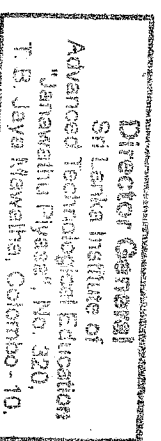 Director General
Sri Lanka Institute of
Advanced Technological Education
"Janawathu Piyasa", No. 320,
T. B. Jaya Mawatha, Colombo-10.